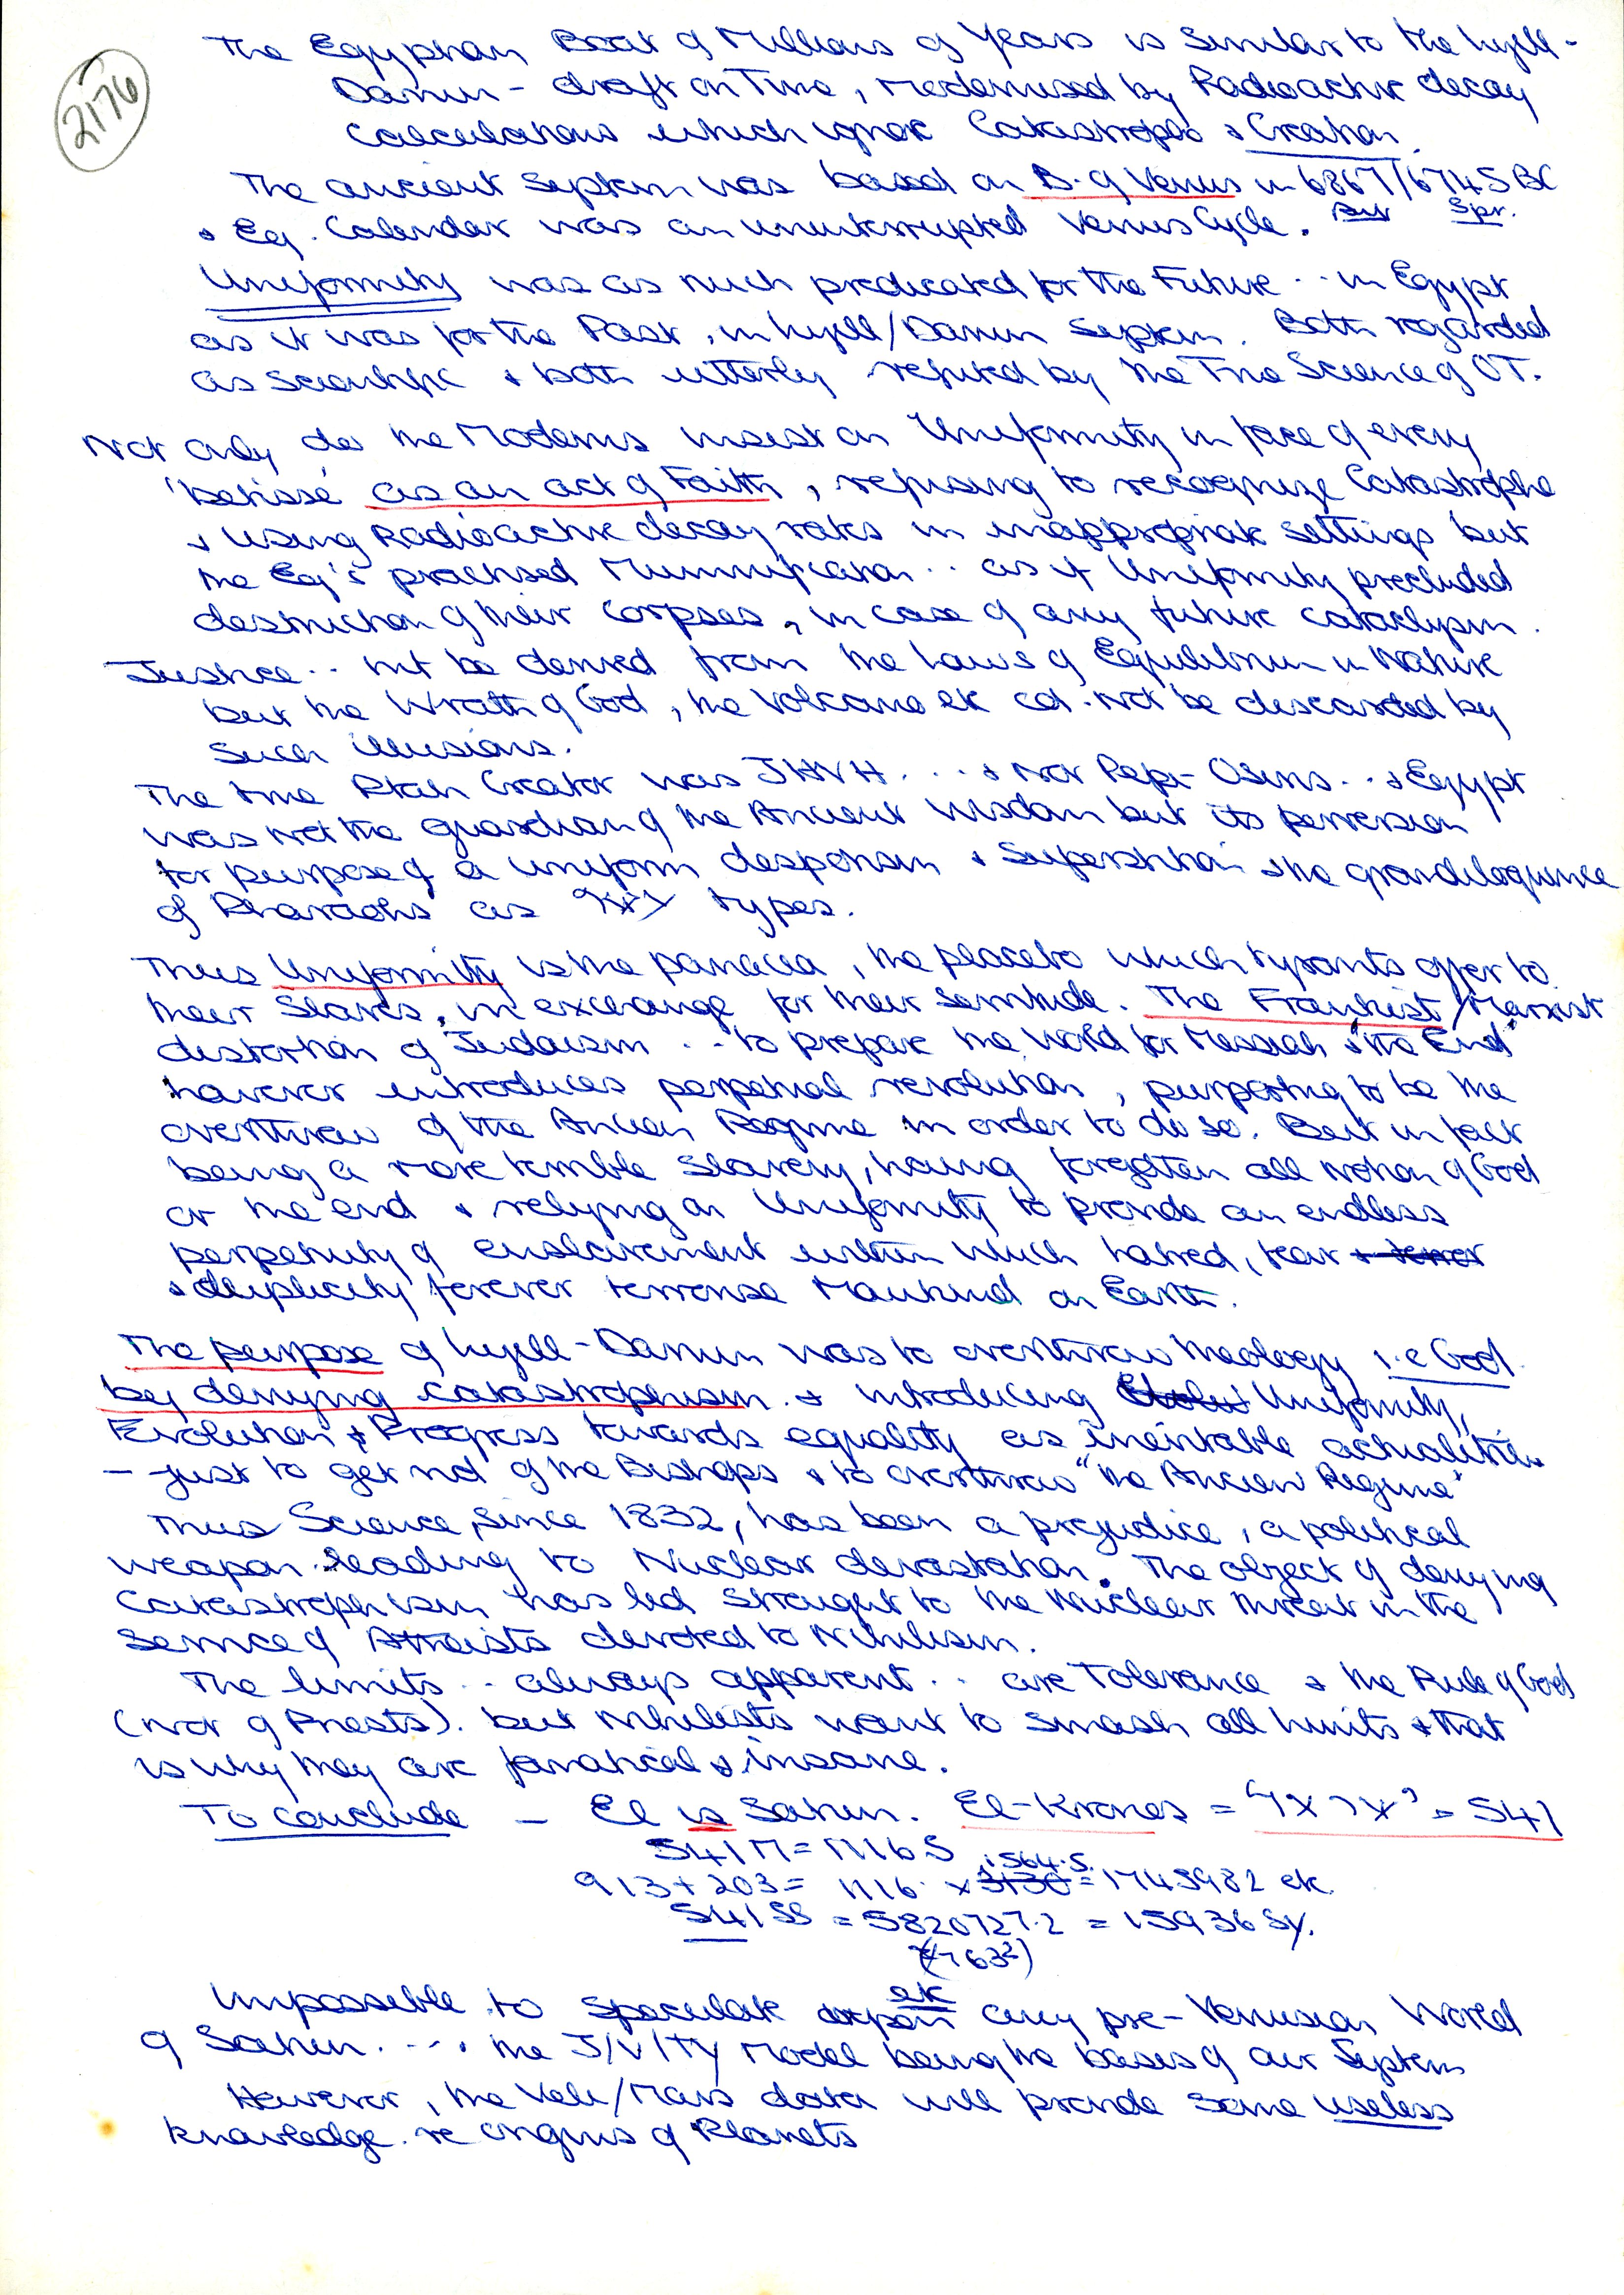 2176
The Egyptian Boat of Millions of Years is similar to the Lyell-
Darwin - draft on Time, Modernised by Radioactive decay
Calculations which ignore Catastrophe & Creation.
The ancient system was based on B. of Venus in 6867/6745 BC
& Eg. Calendar was an uninterrupted Venus Cycle. But Spr.
Uniformity was as much predicated for the Future .. in Egypt
as it was for the Past, in Lyell/Darwin System. Both regarded
as Scientific & both utterly refuted by the True Science of OT.
Not only do the Moderns insist on Uniformity in face of every
'betisse' as an act of Faith, refusing to recognize Catastrophe
& using Radioactive decay rates in inappropriate settings but
the Eg's practised Mummification .. as if Uniformity precluded
destruction of their Corpses, in case of any future cataclysm.
Justice .. mt be derived from the Laws of Equilibrium in Nature
but the Wrath of God, the Volcano etc cd. not be discarded by
such illusions.
The true Ptah Creator was JHVH .... & Nor Pepi-Osiris .. & Egypt
was not the guardian of the Ancient Wisdom but its perversion
for purpose of a uniform despotism & Superstition & the grandiloquence
of Pharaohs as types.
Thus Uniformity is the panacea, the placebo which tyrants offer to
their Slaves, in exchange for their Servitude. The Frankist/Marxist
distortion of Judaism .. to prepare the World for Messiah & "the End"
however introduces perpetual revolution, purporting to be the
overthrow of the Ancien Regime in order to do so. But in fact
being a more terrible Slavery, having forgotten all notion of God
or the end & relying on Uniformity to provide an endless
perpetuity of enslavement within which hatred, fear & terror
& duplicity forever terrorise Mankind on Earth.
The purpose of Lyell-Darwin was to overthrow theology i.e God
by denying catastrophism. & introducing Uniformity,
Evolution & Progress towards equality as inevitable actualities
- just to get rid of the Bishops & to overthrow "the Ancien Regime"
Thus Science, since 1832, has been a prejudice, a political
weapon leading to Nuclear devastation. The object of denying
Catastrophism has led straight to the Nuclear threat in the
service of Atheists devoted to Nihilism.
The limits .. always apparent .. are Tolerance & the Rule of God
(not of Priests). but Nihilists want to smash all limits & that
is why they are fanatical & insane.
To conclude - El is Saturn. El-Kronos = = 541
541 M = 11116.5
913 + 203 = 1116 × 3130 1564.5. = 1745982 etc.
541 SS = 5820727.2 = 15936 Sy.
(763²)
Impossible to speculate etc any pre-Venusian World
of Saturn. ... the J/V/Ty Model being the basis of our System
However, the Vela/Mars data will provide some useless
knowledge re origins of Planets